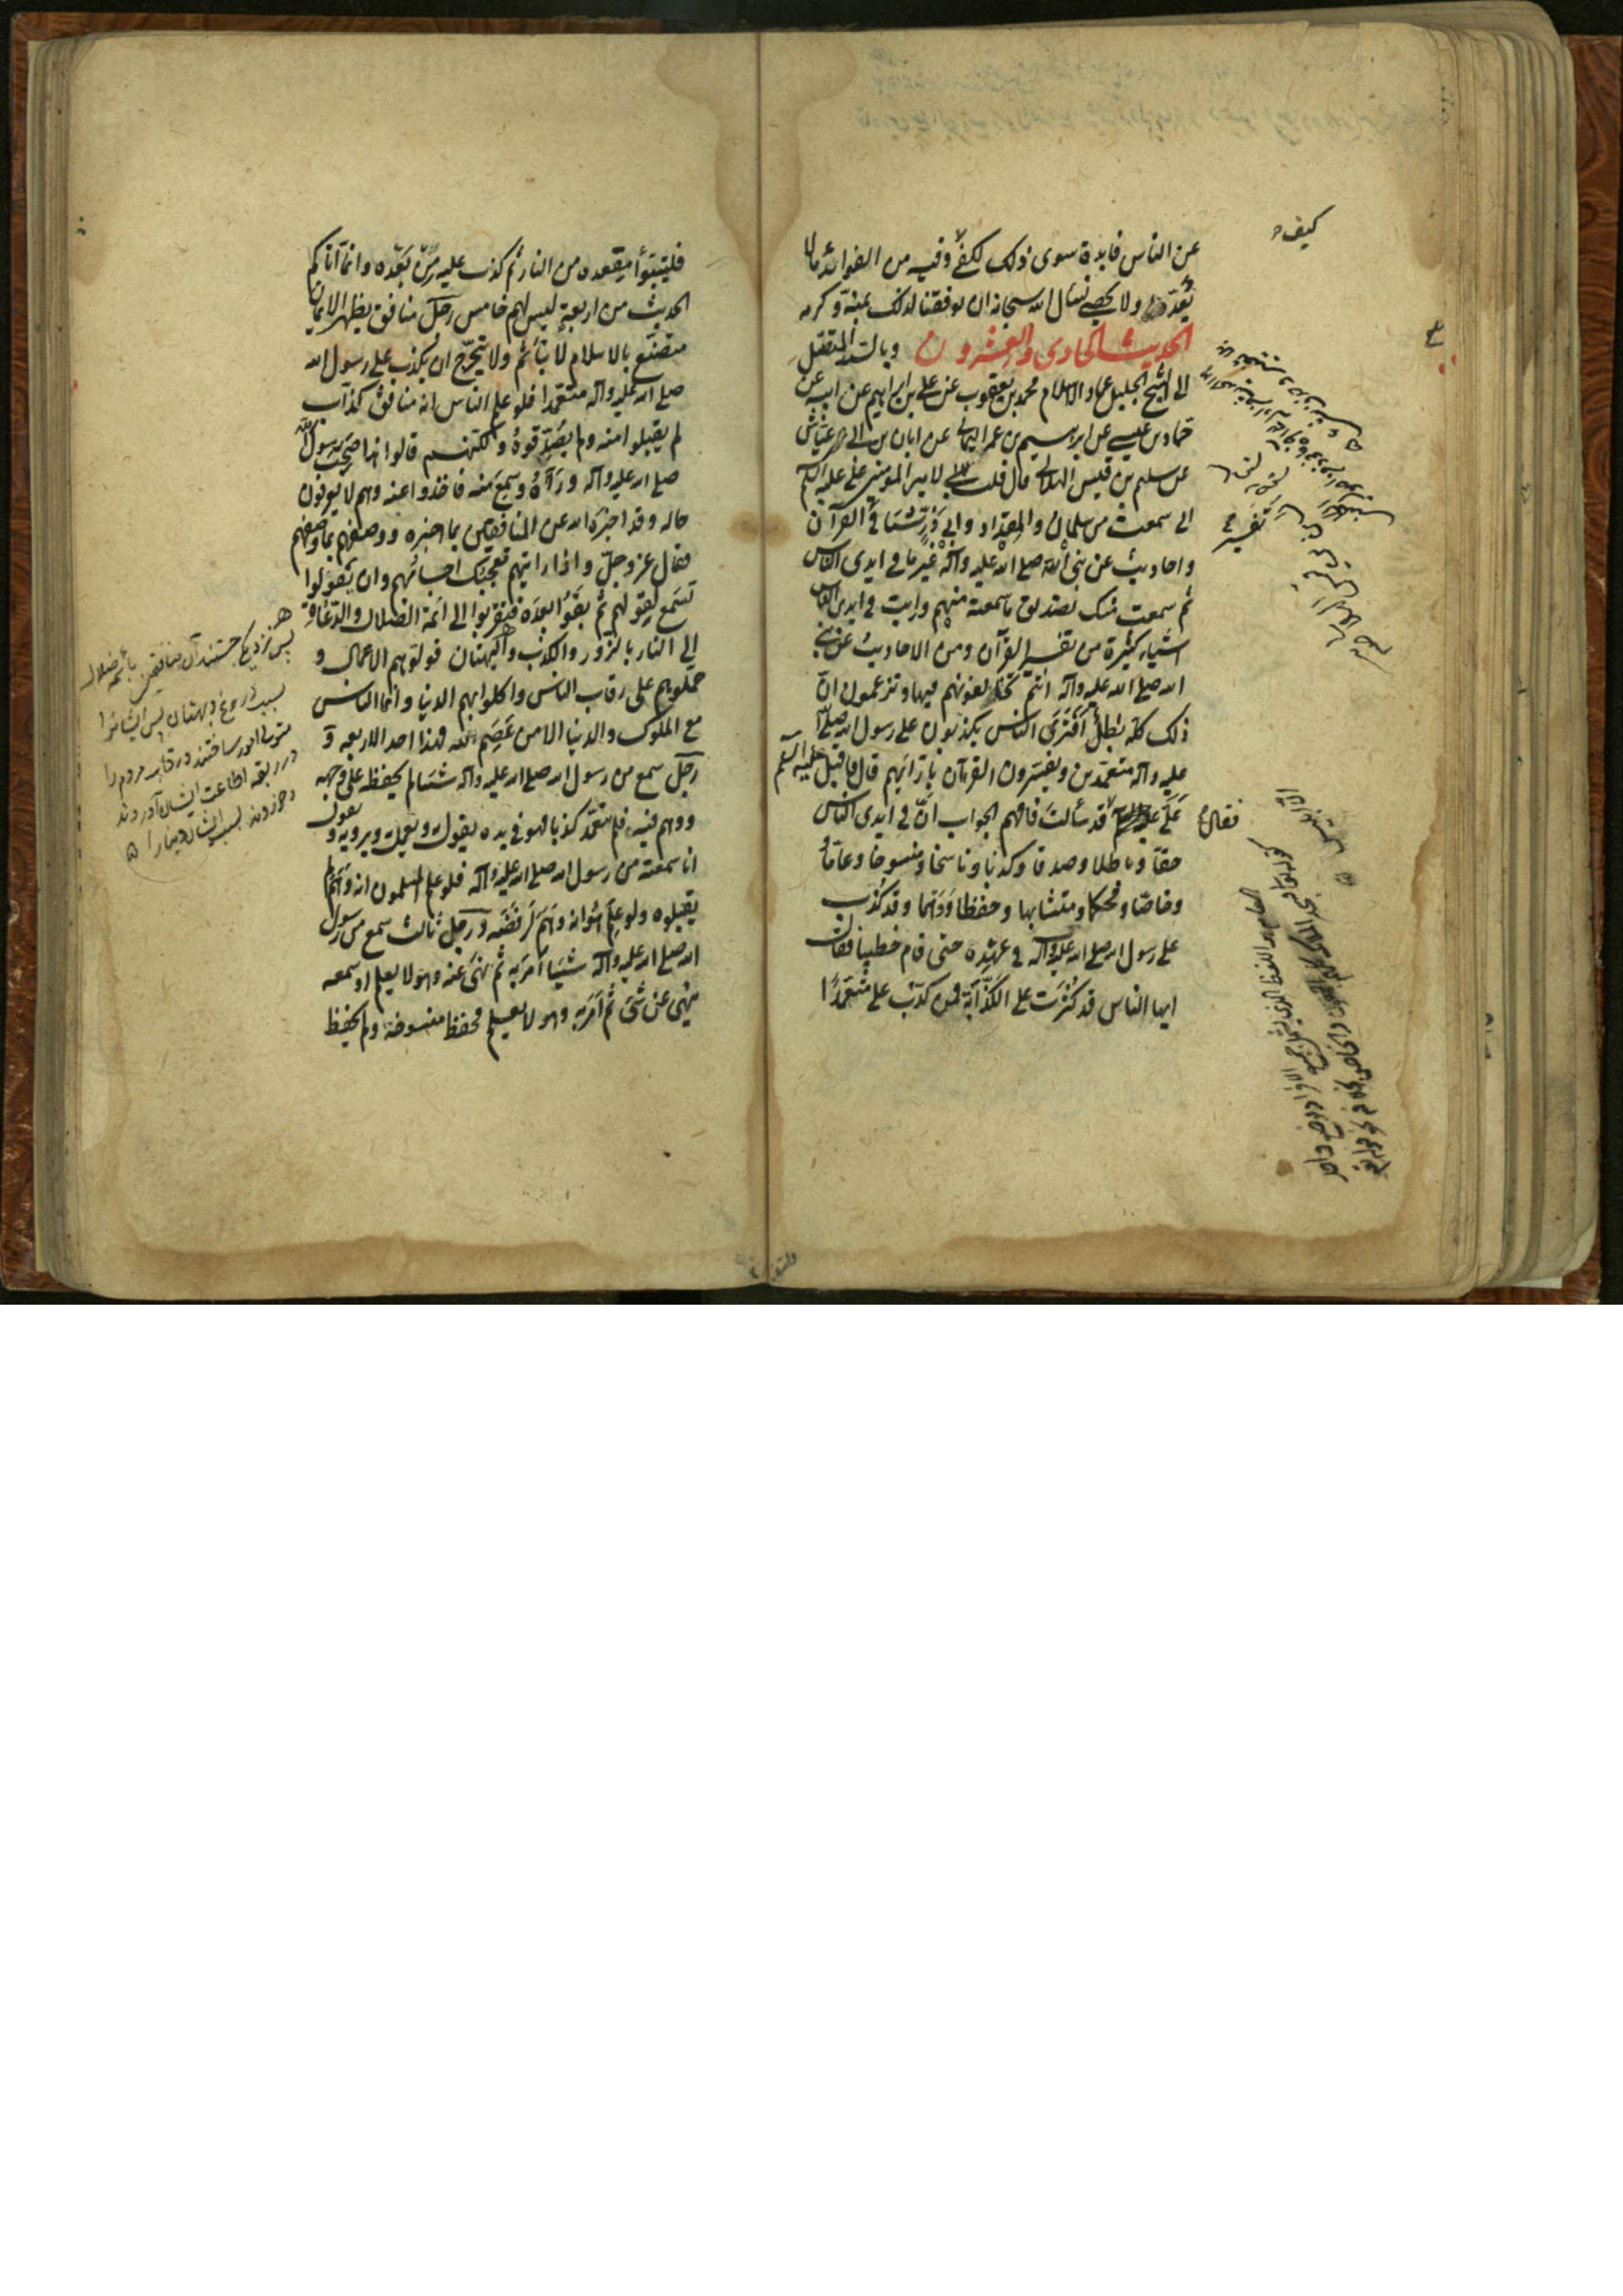 كيف
عن الناس فايدة سوى ذلك لكفى وفيه من الفوائد ما لا
يعد ولا يحصى نسال الله سبحانه ان يوفقنا لذلك بمنه وكرمه
الحديث الحادى والعشرون وبالسند المتصل
الى الشيخ الجليل عماد الاسلام محمد بن يعقوب عن على بن ابراهيم عن ابيه عن
حماد بن عيسى عن ابراهيم بن عمر اليمانى عن ابان بن ابى عياش
عن سليم بن قيس الهلالى قال قلت لامير المؤمنين على عليه السلام
انى سمعت من سلمان والمقداد وابى ذر شيئا من تفسير القرآن
واحاديث عن نبى الله صلى الله عليه وآله غير ما فى ايدى الناس
ثم سمعت منك تصديق ما سمعته منهم ورايت فى ايدى الناس
اشياء كثيرة من تفسير القرآن ومن الاحاديث عن نبى
الله صلى الله عليه وآله انتم تخالفونهم فيها وتزعمون ان
ذلك كله باطل أفترى الناس يكذبون على رسول الله صلى الله
عليه وآله متعمدين ويفسرون القرآن بارائهم قال فاقبل
على عليه السلم فقال قد سألت فافهم الجواب ان فى ايدى الناس
حقا وباطلا وصدقا وكذبا وناسخا ومنسوخا وعاما
وخاصا ومحكما ومتشابها وحفظا ووهما وقد كذب
على رسول الله صلى الله عليه وآله فى عهده حتى قام خطيبا فقال
ايها الناس قد كثرت على الكذابة فمن كذب على متعمدا
فليتبوأ مقعده من النار ثم كذب عليه من بعده وانما اتاكم
الحديث من اربعة ليس لهم خامس رجل منافق يظهر الايمان
متصنع بالاسلام لا يتأثم ولا يتحرج ان يكذب على رسول الله
صلى الله عليه وآله متعمدا فلو علم الناس انه منافق كذاب
لم يقبلوا منه ولم يصدقوه ولكنهم قالوا هذا صحب رسول الله
صلى الله عليه وآله ورآه وسمع منه فاخذوا عنه وهم لا يعرفون
حاله وقد اخبره الله عن المنافقين بما اخبره ووصفهم بما وصفهم
فقال عز وجل واذا رايتهم تعجبك اجسامهم وان يقولوا
تسمع لقولهم ثم بقوا بعده فتقربوا الى ائمة الضلال والدعاة
الى النار بالزور والكذب والبهتان فولوهم الاعمال و
حملوهم على رقاب الناس واكلوا بهم الدنيا وانما الناس
مع الملوك والدنيا الا من عصم الله فهذا احد الاربعه و
رجل سمع من رسول الله صلى الله عليه وآله شيئا لم يحفظه على وجهه
ووهم فيه فلم يتعمد كذبا فهو فى يده يقول به ويعمل به ويرويه ويقول
انا سمعته من رسول الله صلى الله عليه وآله فلو علم المسلمون انه وهم لم
يقبلوه ولو علم هو انه وهم لرفضه ورجل ثالث سمع من رسول
الله صلى الله عليه وآله شيئا امر به ثم نهى عنه وهو لا يعلم او سمعه
ينهى عن شئ ثم امر به وهو لا يعلم فحفظ منسوخه ولم يحفظ
پس نزديكى جستند آن منافقين بائمه ضلال
بسبب دروغ وبهتان پس ايشانرا
متولى امور ساختند ورقاب مردم را
در ربقه اطاعت ايشان آوردند
وخوردند بسبب ايشان دنيا را